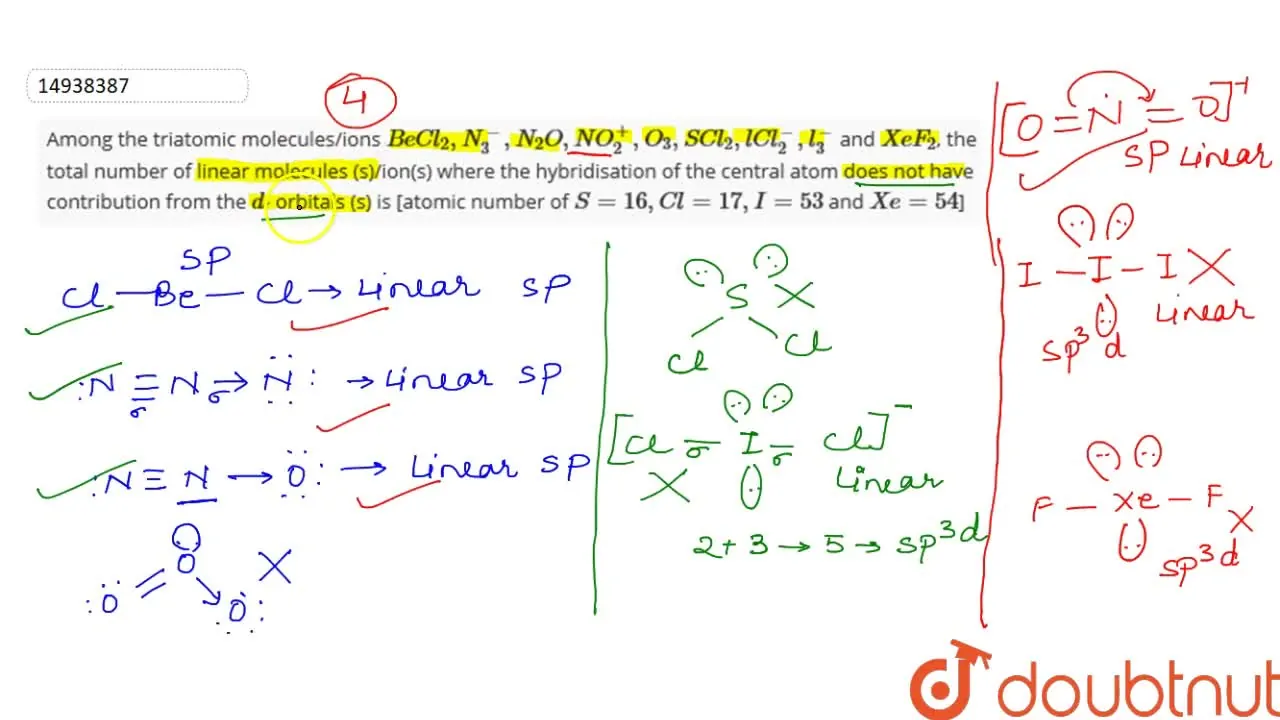 14938387
4
Among the triatomic molecules/ions BeCl₂, N₃⁻, N₂O, NO₂⁺, O₃, SCl₂, lCl₂⁻, l₃⁻ and XeF₂, the
total number of linear molecules (s)/ion(s) where the hybridisation of the central atom does not have
contribution from the d- orbitals (s) is [atomic number of S = 16, Cl = 17, I = 53 and Xe = 54]
SP
Cl — Be — Cl → Linear SP
:N ≡ N → N: → Linear SP
σ σ
:N ≡ N → O: → Linear SP
O X
:O = → O:
S X
Cl Cl
[Cl — I — Cl]⁻
σ σ
X Linear
2 + 3 → 5 → sp³d
[O = N = O]⁺
SP Linear
I — I — I X
Linear
sp³d
F — Xe — F X
sp³d
doubtnut